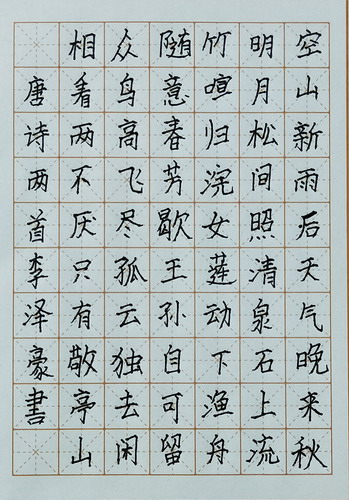 空山新雨后天气晚来秋
明月松间照清泉石上流
竹喧归浣女莲动下渔舟
随意春芳歇王孙自可留
众鸟高飞尽孤云独去闲
相看两不厌只有敬亭山
唐诗两首李泽豪書